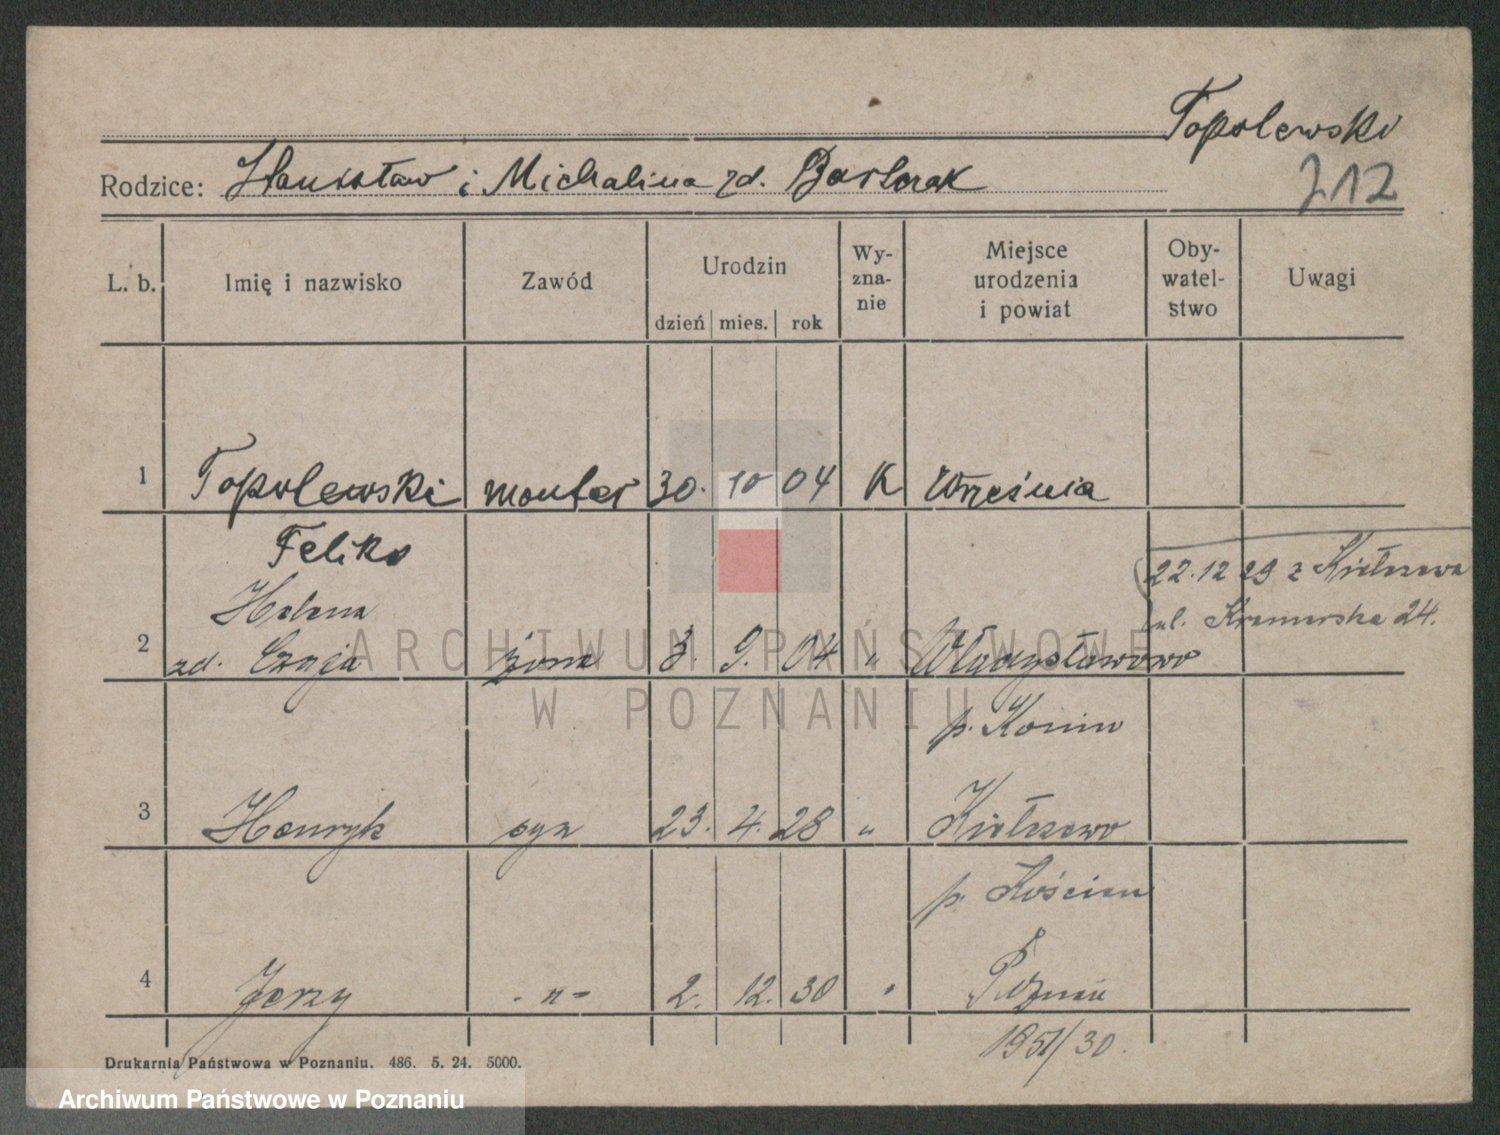 Topolewski
Rodzice: Stanisław i Michalina zd. Bartczak
212
L. b. Imię i nazwisko Zawód Urodzin dzień mies. rok Wy-zna-nie Miejsce urodzenia i powiat Oby-watel-stwo Uwagi
1 Topolewski monter 30. 10 04 K Września
Feliks
22.12 29 z Kiełczewa
Helena
ul. 24.
2 zd. Czaja żona 3. 9. 04 " Władysławowo
p. Konin
3 Henryk syn 23. 4. 28 " Kiełczewo
p. Kościan
4 Jerzy - " - 2. 12. 30 " Poznań
1951/30.
Drukarnia Państwowa w Poznaniu. 486. 5. 24. 5000.
ARCHIWUM PAŃSTWOWE
W POZNANIU
Archiwum Państwowe w Poznaniu